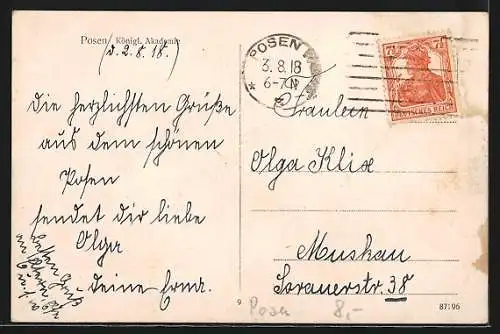 Posen Königl. Akademie
(d. 2. 8. 18.)
Die herzlichsten Grüße
aus dem schönen
Posen
sendet dir liebe
Olga
deine Erna.
besten Gruß
an
u.
POSEN
3. 8. 18
6-7 N
7½ 7½
DEUTSCHES REICH
Fräulein
Olga Klix
Muskau
Sorauerstr. 38
9
Posen 8,-
87196